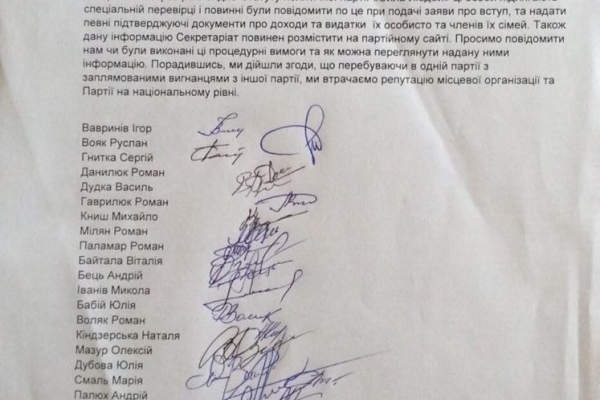 спеціальній перевірці і повинні були повідомити по це при подачі заяви про вступ, та надати
певні підтверджуючі документи про доходи та видатки їх особисто та членів їх сімей. Також
дану інформацію Секретаріат повинен розмістити на партійному сайті. Просимо повідомити
нам чи були виконані ці процедурні вимоги та як можна переглянути надану ними
інформацію. Порадившись, ми дійшли згоди, що перебуваючи в одній партії з
заплямованими вигнанцями з іншої партії, ми втрачаємо репутацію місцевої організації та
Партії на національному рівні.
Вавринів Ігор
Вояк Руслан
Гнитка Сергій
Данилюк Роман
Дудка Василь
Гаврилюк Роман
Книш Михайло
Мілян Роман
Паламар Роман
Байтала Віталія
Бець Андрій
Іванів Микола
Бабій Юлія
Воляк Роман
Кіндзерська Наталя
Мазур Олексій
Дубова Юлія
Смаль Марія
Палюх Андрій